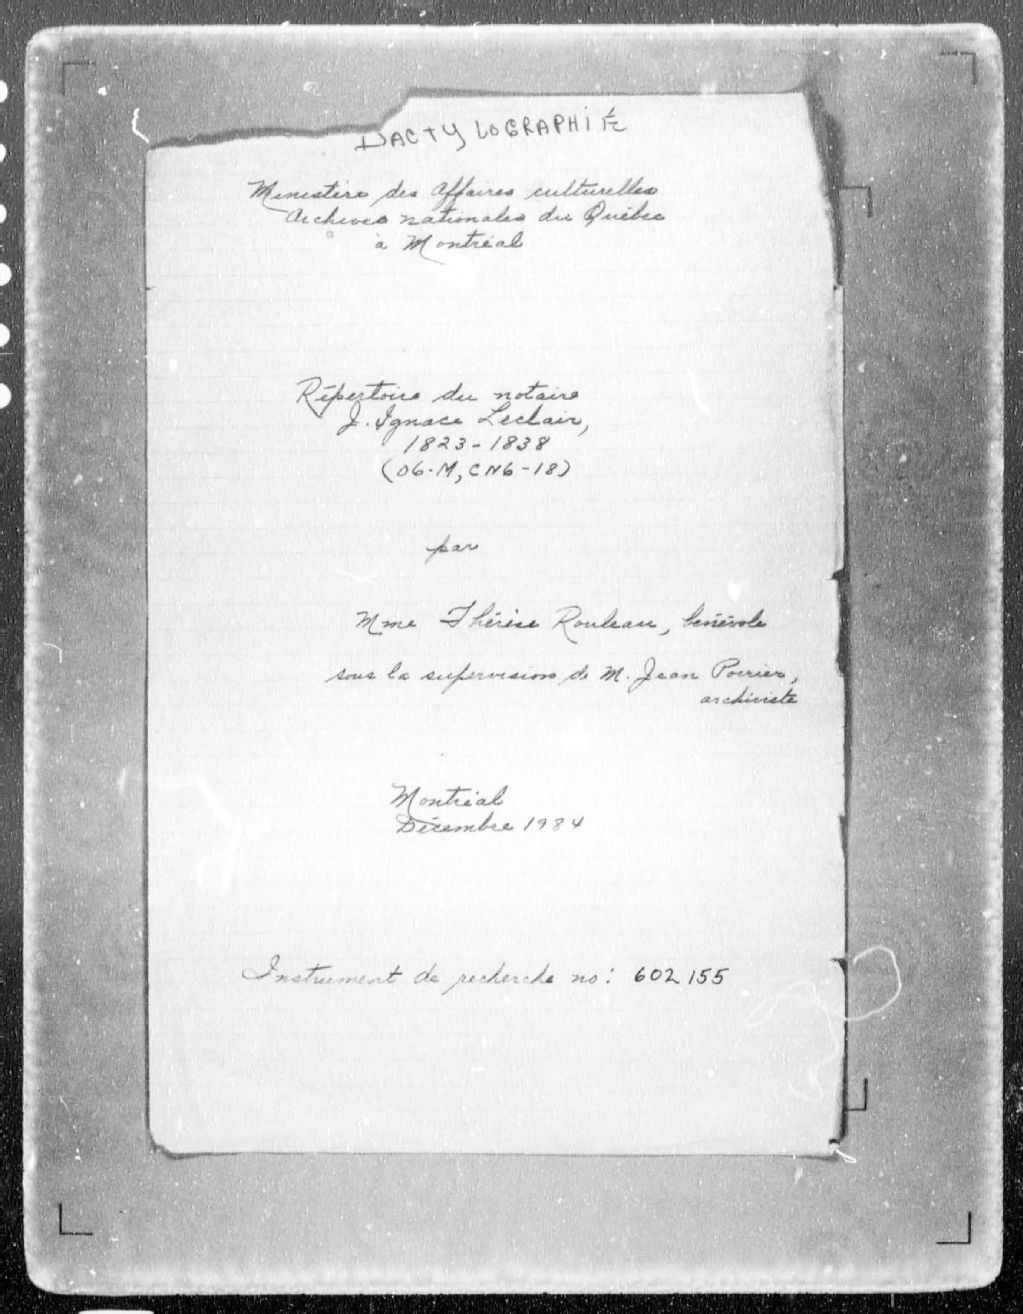 DACTYLOGRAPHIÉ
Ministère des Affaires culturelles
Archives nationales du Québec
à Montréal
Répertoire du notaire
J. Ignace Leclair,
1823-1838
(06-M, CN6-18)
par
Mme Thérèse Rouleau, bénévole
sous la supervision de M. Jean Poirier,
archiviste
Montréal
Décembre 1984
Instrument de recherche no: 602155